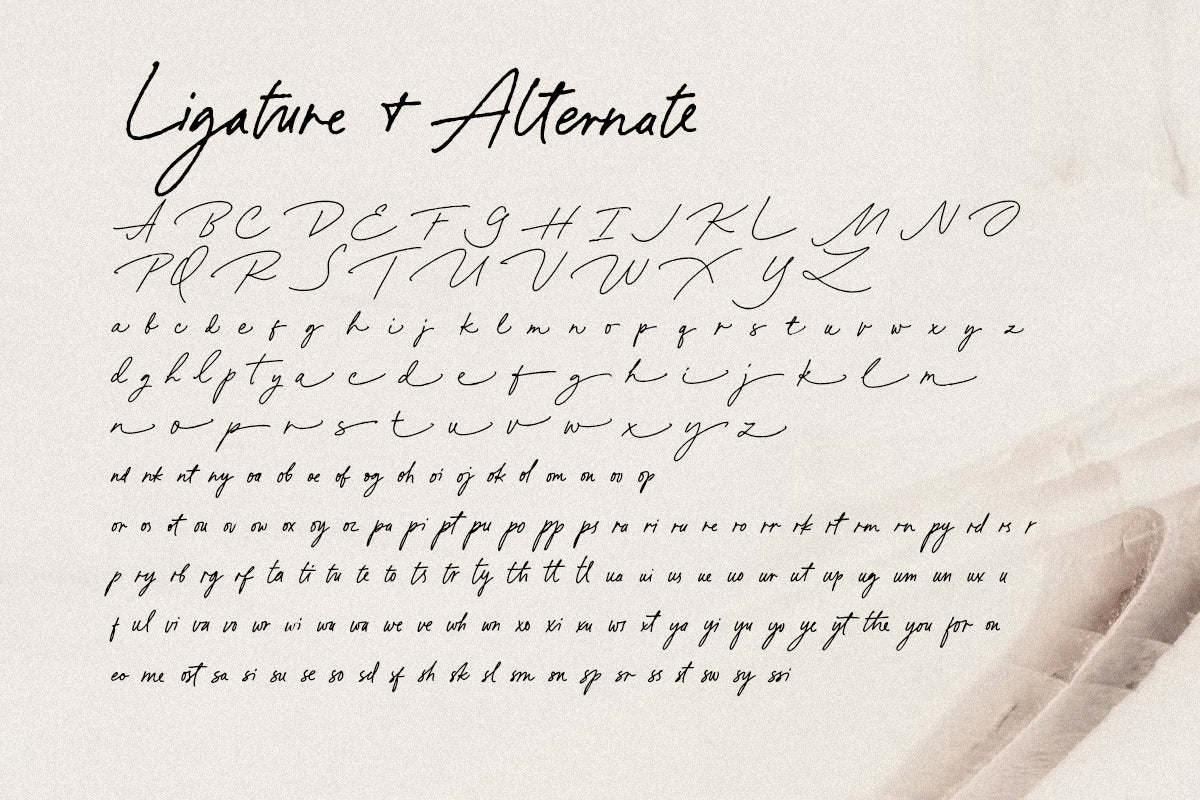 Ligature + Alternate
A B C D E F G H I J K L M N O
P Q R S T U V W X Y Z
a b c d e f g h i j k l m n o p q r s t u v w x y z
d g h l p t y a c d e f g h i j k l m
n o p r s t u v w x y z
nd nk nt ny oa ob oe of og oh oi oj ok ol om on oo op
or os ot ou ov ow ox oy oz pa pi pt pu po pp ps ra ri ru re ro rr rk rt rm rn py rd rs r
p ry rb rg rf ta ti tu te to ts tr ty th tt tl ua ui us ue uo ur ut up ug um un ux u
f ul vi va vo wr wi wu wa we ve wh wn xo xi xu ws xt ya yi yu yo ye yt the you for on
eo me ost sa si su se so sd sf sh sk sl sm sn sp sr ss st sw sy ssi